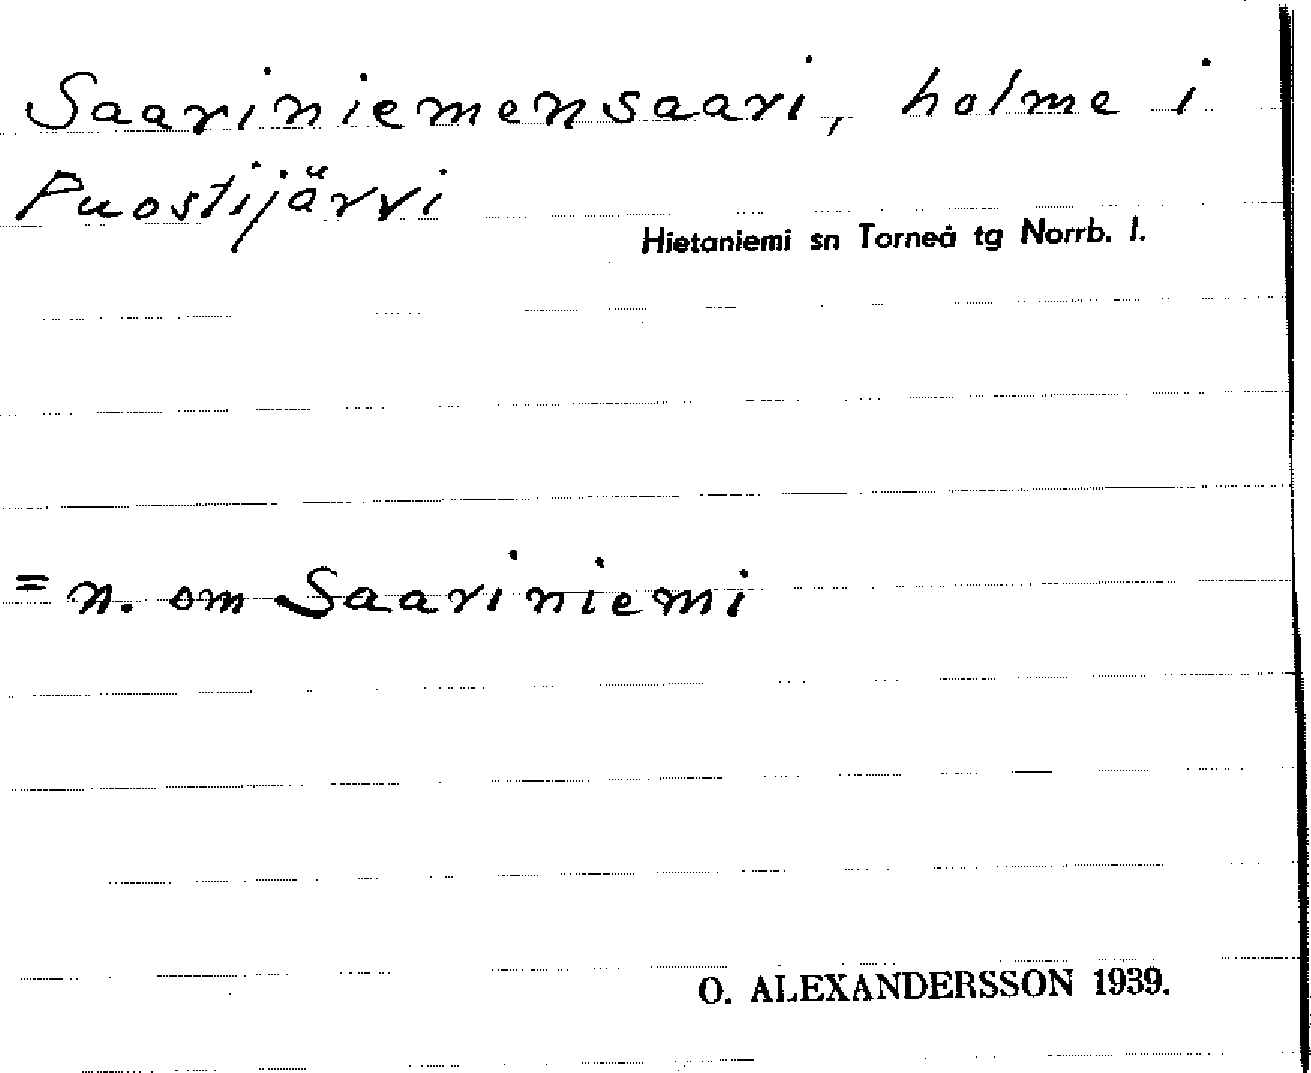 Saariniemensaari, holme i
Puostijärvi
Hietaniemi sn Torneå tg Norrb. l.
= n. om Saariniemi
O. ALEXANDERSSON 1939.